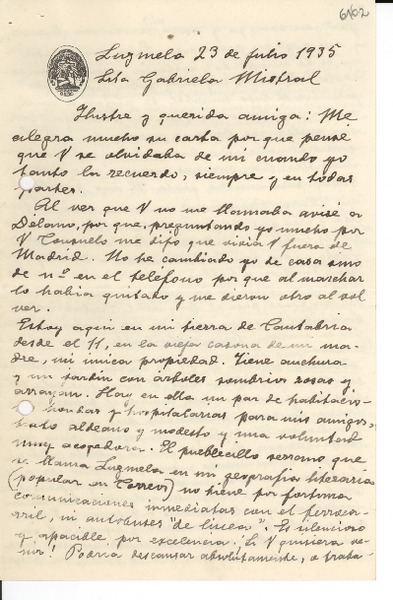 6102
Luzmela 23 de julio 1935
Srta Gabriela Mistral
Ilustre y querida amiga: Me
alegra mucho su carta por que pensé
que V se olvidaba de mí cuando yo
tanto la recuerdo, siempre y en todas
partes.
Al ver que V no me llamaba avisé a
Délano, por que, preguntando yo mucho por
V Consuelo me dijo que vivía V fuera de
Madrid. No he cambiado yo de casa sino
de nº en el teléfono por que al marchar
lo había quitado y me dieron otro al vol
ver.
Estoy aquí en mi tierra de Cantabria
desde el 11, en la vieja casona de mi ma-
dre, mi única propiedad. Tiene anchura
y un jardín con árboles sombríos rosas y
arrayan. Hay en ella un par de habitacio-
hondas y hospitalarias para mis amigos,
trato aldeano y modesto y una voluntad
muy acogedora. El pueblecillo serrano que
se llama Luzmela en mi geografía literaria
(popular en Correos) no tiene por fortuna
comunicaciones inmediatas con el ferroca-
rril, ni autobuses "de línea". Es silencioso
y apacible por excelencia. Si V quisiera ve-
nir! Podría descansar absolutamente, o traba-